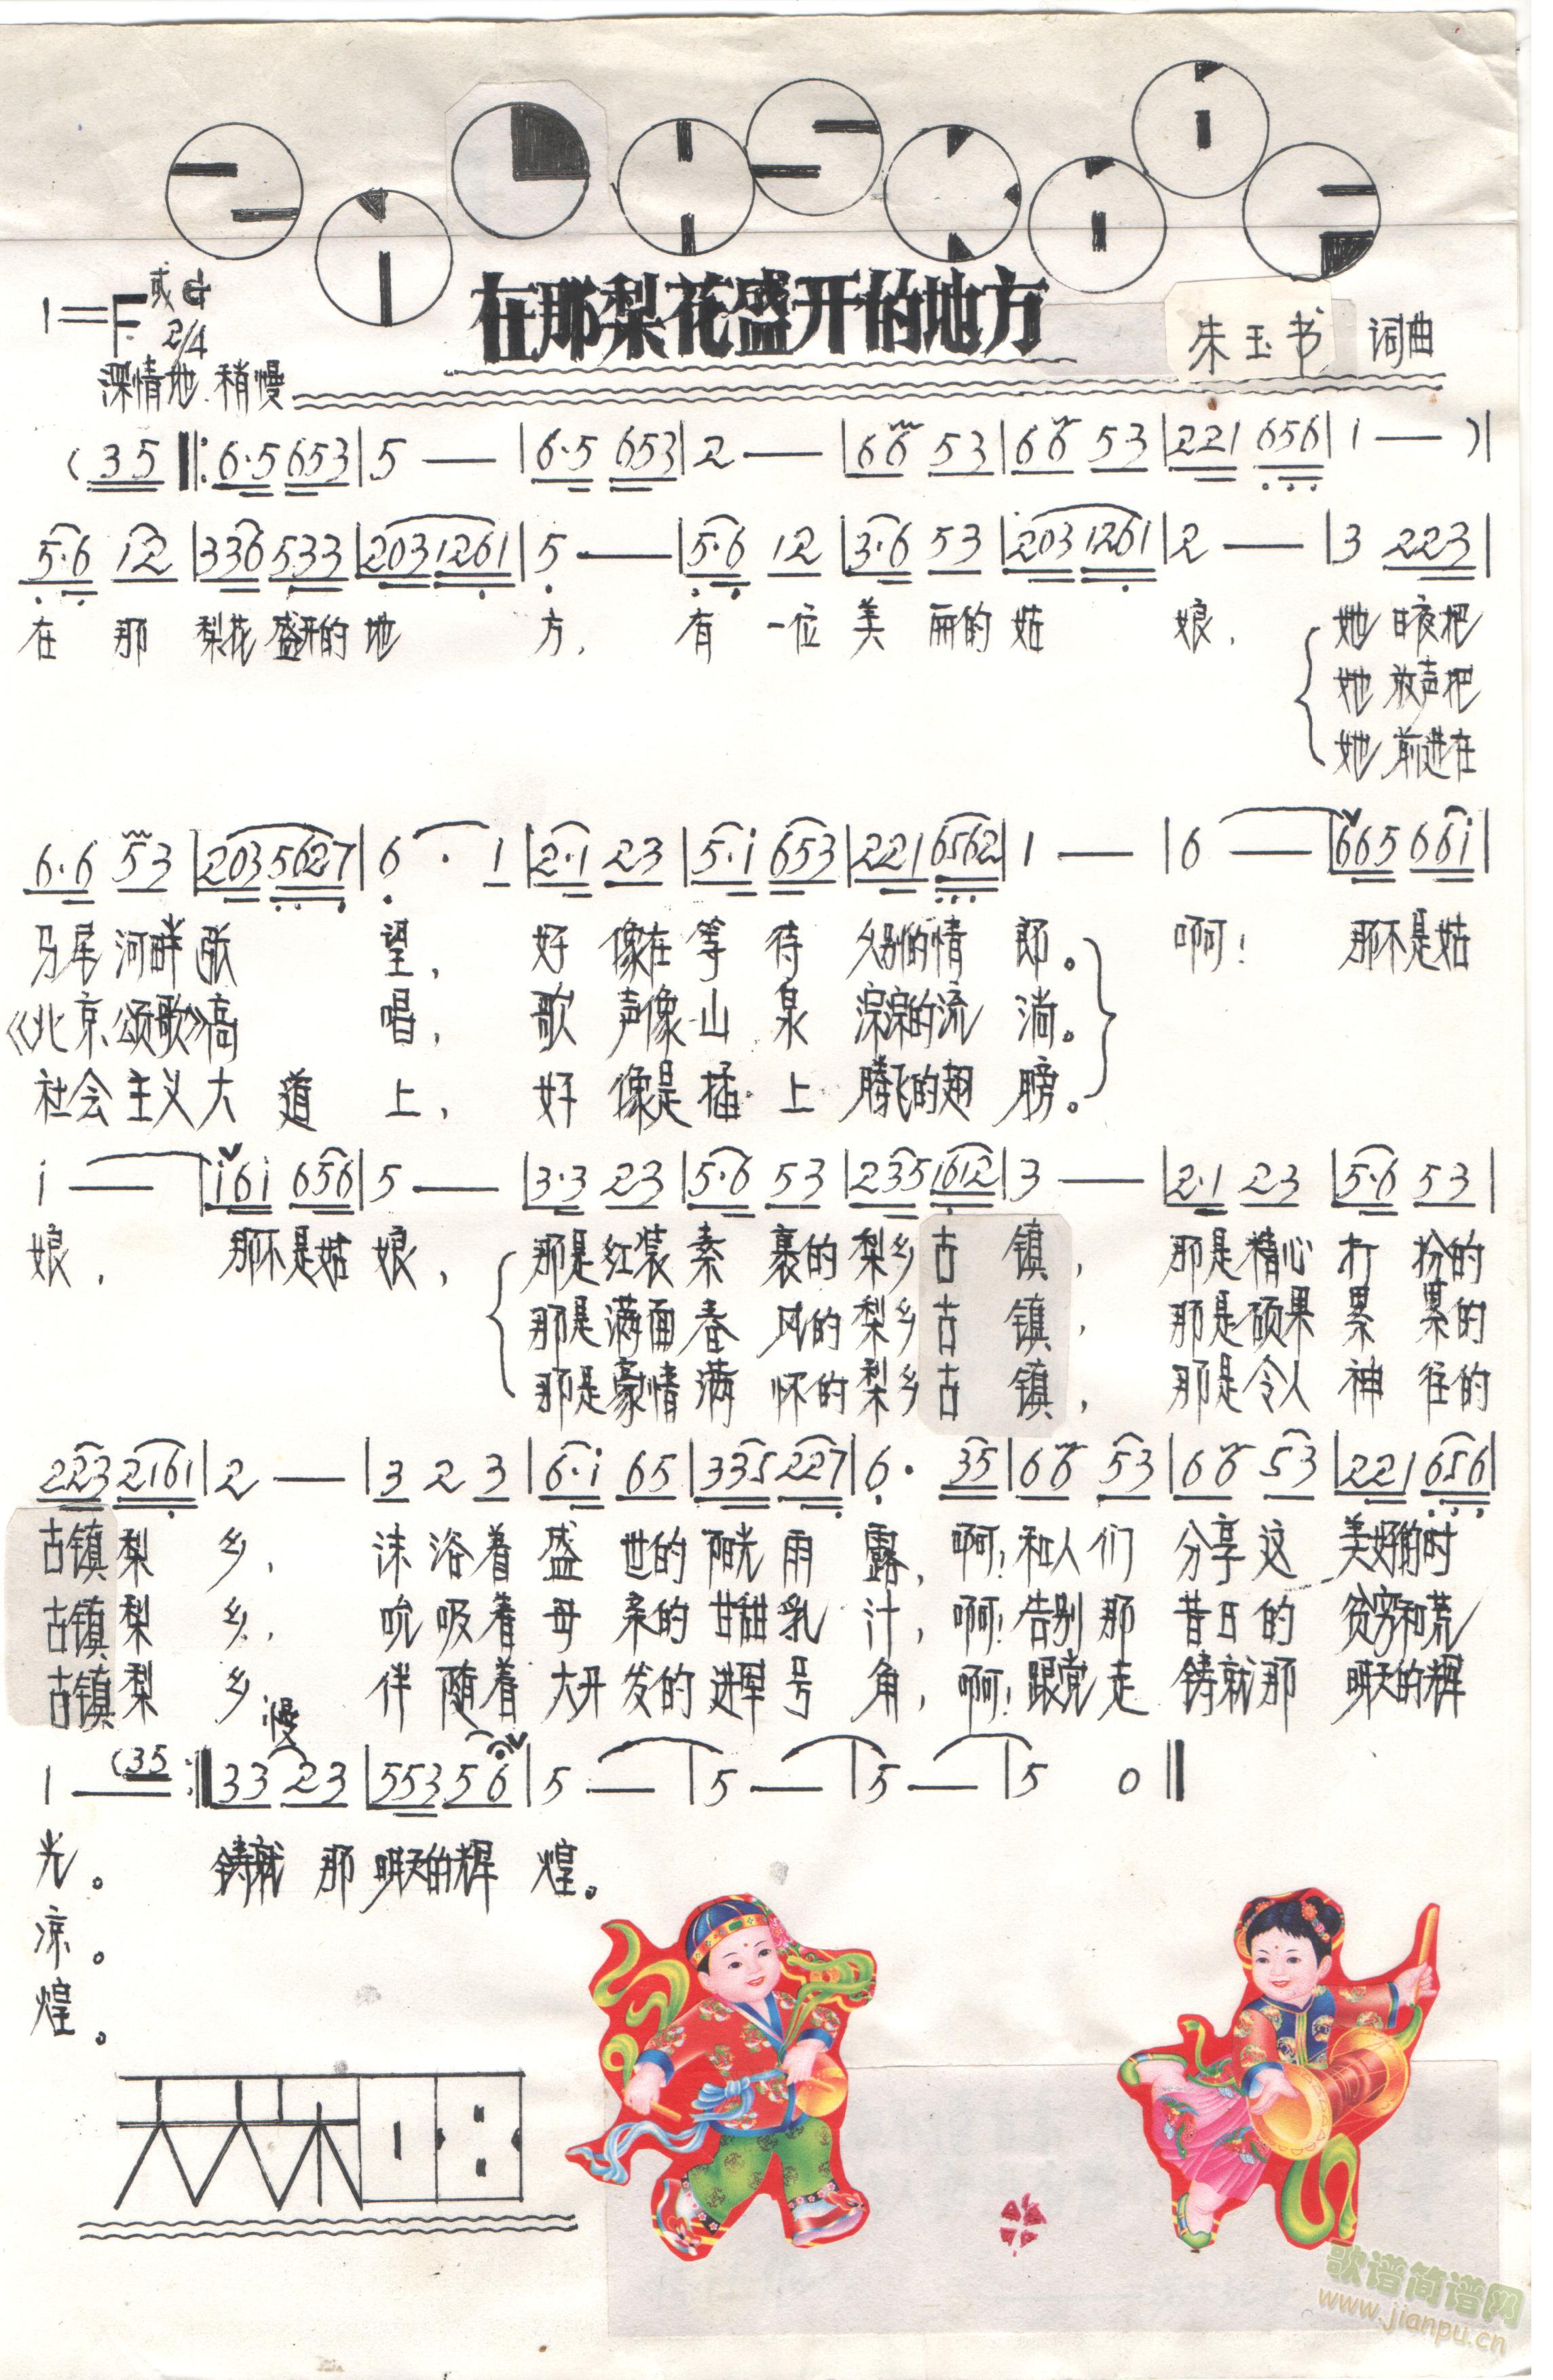 在那梨花盛开的地方
1=F或G 2/4
朱玉书 词曲
深情地 稍慢
(35 ‖: 6·5 653 | 5 — | 6·5 653 | 2 — | 66 53 | 66 53 | 221 656 | 1 — ) |
5·6 12 | 336 533 | 203 1261 | 5 — | 5·6 12 | 3·6 53 | 203 1261 | 2 — | 3 223 |
在 那 梨花 盛开的 地 方, 有 一位 美 丽的 姑 娘, 她 日夜把
她 放声把
她 前进在
6·6 53 | 203 5627 | 6 · 1 | 2·1 23 | 5·i 653 | 221 6562 | 1 — | 6 — | 665 66i |
马尾 河畔 张 望, 好 像在 等 待 久别的情 郎。 啊! 那不是姑
《北京 颂歌》高 唱, 歌 声像 山 泉 淙淙的流 淌。
社会 主义 大 道 上, 好 像是 插 上 腾飞的翅 膀。
i — | i6i 656 | 5 — | 3·3 23 | 5·6 53 | 235 1612 | 3 — | 2·1 23 | 5·6 53 |
娘, 那不是姑 娘, 那是 红装 素 裹的 梨乡 古 镇, 那是 精心 打 扮的
那是 满面 春 风的 梨乡 古 镇, 那是 硕果 累 累的
那是 豪情 满 怀的 梨乡 古 镇, 那是 令人 神 往的
223 2161 | 2 — | 3 2 3 | 6·i 65 | 335 227 | 6· 35 | 66 53 | 66 53 | 221 656 |
古镇 梨 乡, 沐 浴 着 盛 世的 阳光 雨 露, 啊! 和人 们 分享 这 美好的时
古镇 梨 乡, 吮 吸 着 母 亲的 甘甜 乳 汁, 啊! 告别 那 昔日 的 贫穷和荒
古镇 梨 乡 伴 随 着 大开 发的 进军 号 角, 啊! 跟党 走 铸就 那 明天的辉
慢
1 — (35 :‖ 33 23 | 553 56 | 5 — | 5 — | 5 — | 5 0 ‖
光。 铸就 那 明天的辉 煌。
凉。
煌。
歌谱简谱网
www.jianpu.cn